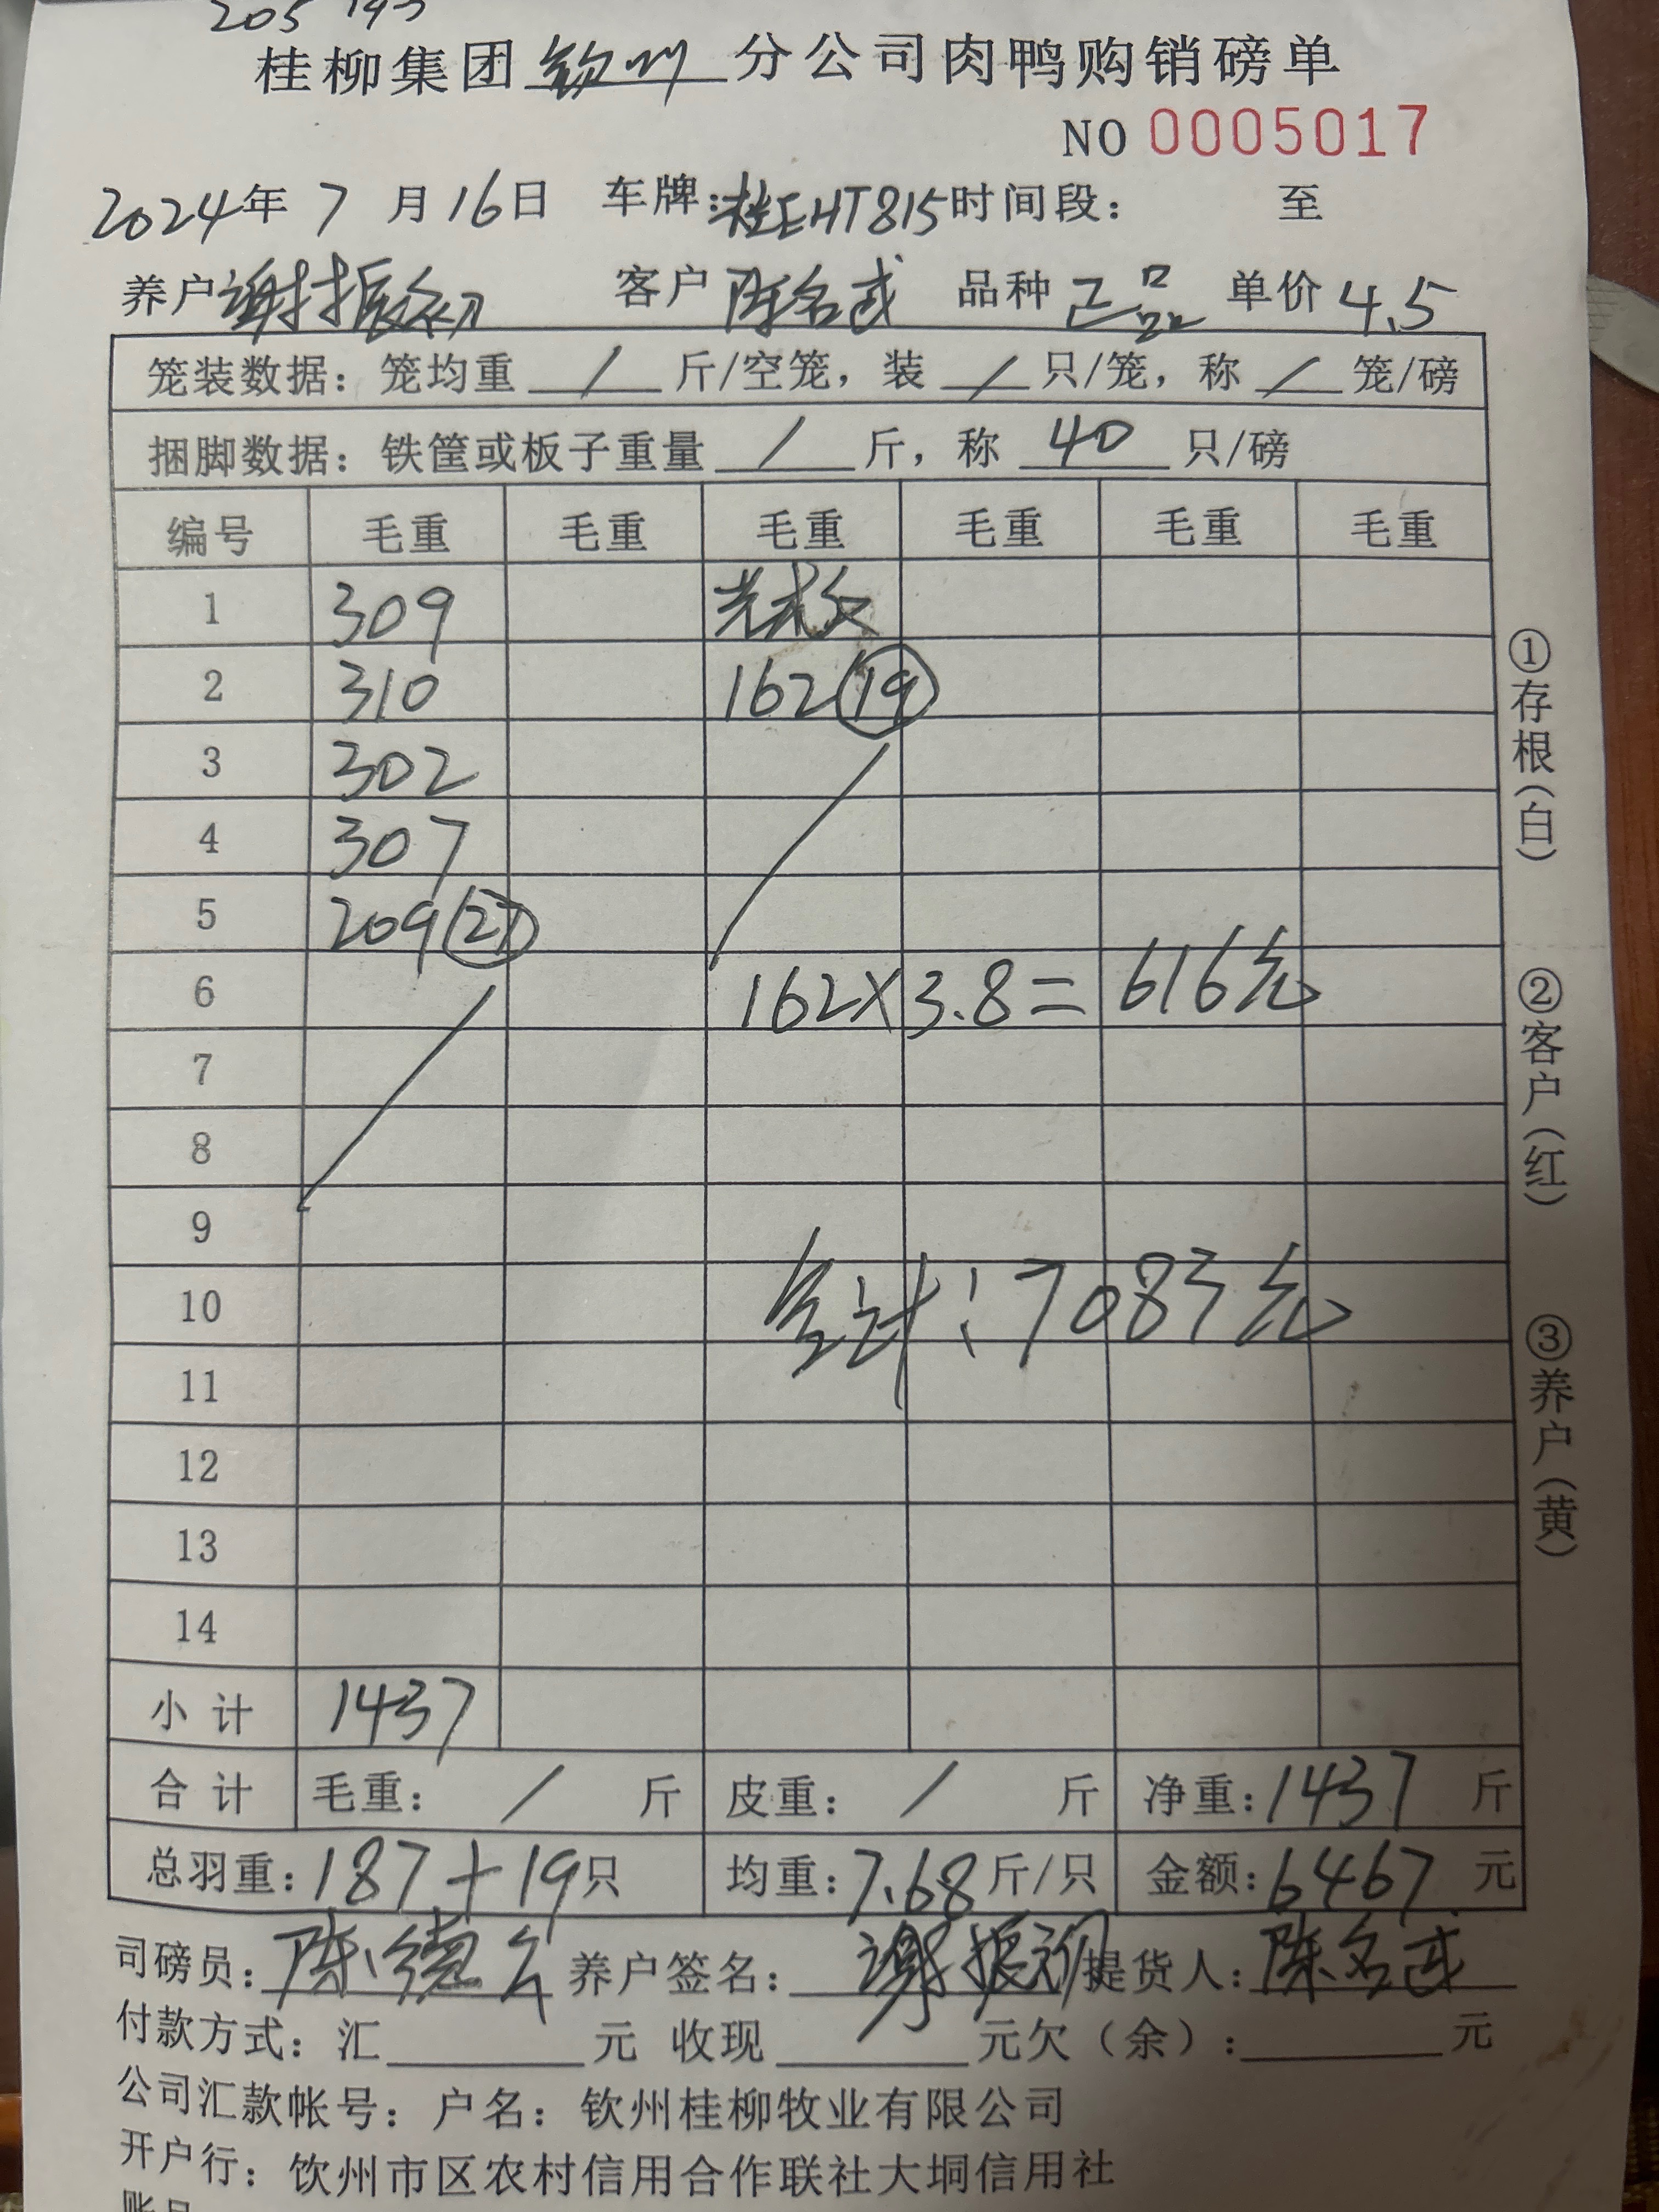 205 193
桂柳集团 钦州 分公司肉鸭购销磅单
NO 0005017
2024年 7 月 16日 车牌:桂EHT815 时间段: 至
养户 谢振初 客户 陈名武 品种 正品 单价 4.5
笼装数据: 笼均重 / 斤/空笼, 装 / 只/笼, 称 / 笼/磅
捆脚数据: 铁筐或板子重量 / 斤, 称 40 只/磅
编号 毛重 毛重 毛重 毛重 毛重 毛重
1 309
2 310 162 (19)
3 302
4 307
5 209 (27)
6 162×3.8= 616元
7
8
9
10 合计:7083元
11
12
13
14
小计 1437
合计 毛重: / 斤 皮重: / 斤 净重:1437 斤
总羽重:187+19只 均重:7.68斤/只 金额:6467 元
司磅员: 陈德 养户签名: 谢振初 提货人: 陈名武
付款方式: 汇 元 收现 元欠(余): 元
公司汇款帐号: 户名: 钦州桂柳牧业有限公司
开户行: 饮州市区农村信用合作联社大垌信用社
账号
①存根(白)
②客户(红)
③养户(黄)